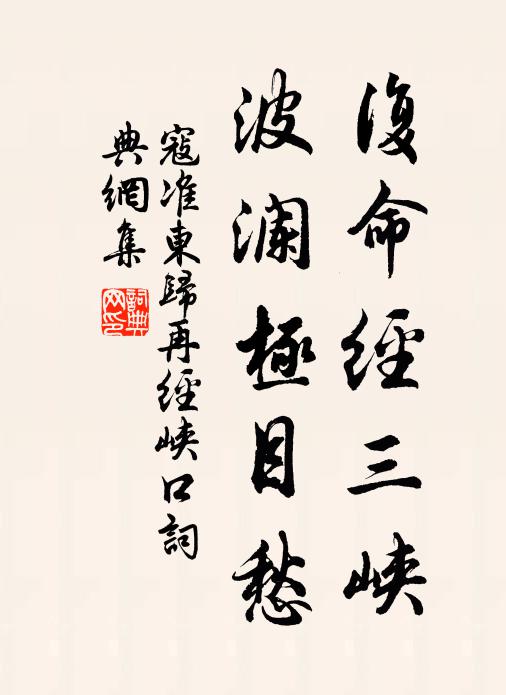 復命經三峽
波瀾極目愁
寇准東歸再經峽口詞
典網集
詞典
网印